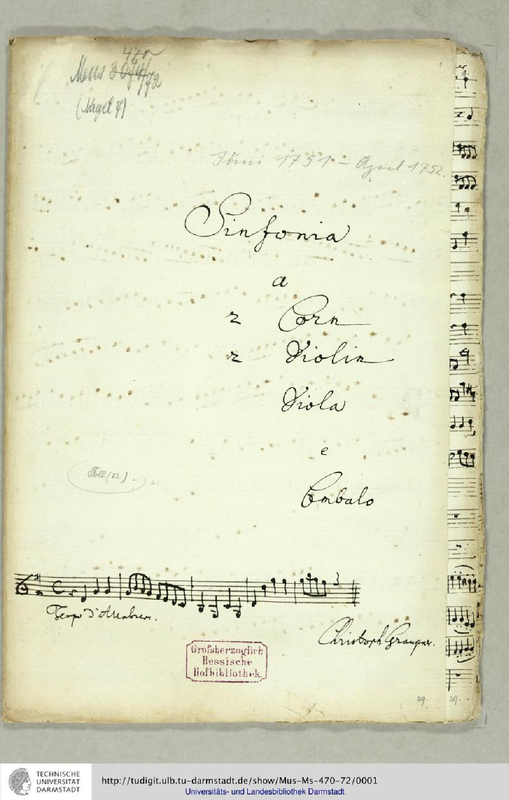 470
Mus 3074/72
(Nagel 4)
Juni 1751 – April 1752.
Sinfonia
a
2 Corn
2 Violin
Viola
e
Cembalo
Christoph Graupner.
Großherzoglich
Hessische
Hofbibliothek.
29.
29.
TECHNISCHE
UNIVERSITÄT
DARMSTADT
http://tudigit.ulb.tu-darmstadt.de/show/Mus-Ms-470-72/0001
Universitäts- und Landesbibliothek Darmstadt